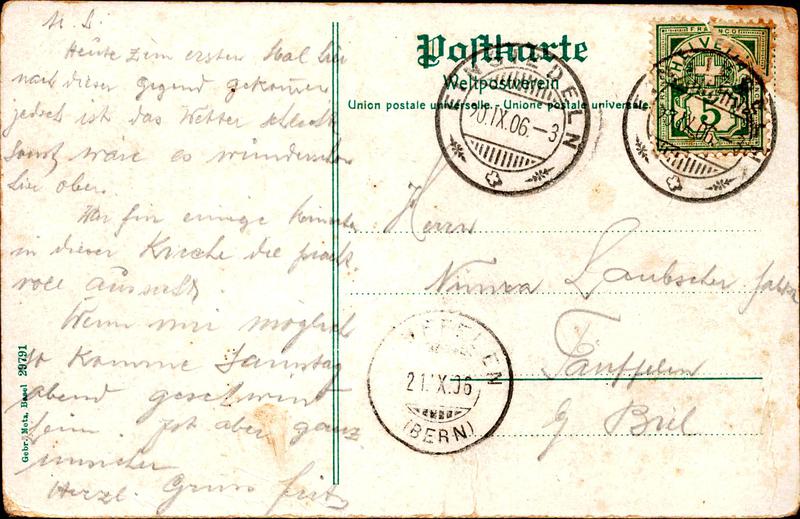 M. L.
Heute zum ersten Mal hier
nach dieser Gegend gekommen
jedoch ist das Wetter schlecht
sonst wäre es wunderschön
hier oben.
War für einige Minuten
in dieser Kirche die pracht-
voll aussieht.
Wenn mir möglich
so komme Samstag
abend geschwind
heim. Ist aber ganz
unsicher
Herzl. Gruss Fritz
Gebr. Metz, Basel 29791
Postkarte
Weltpostverein
Union postale universelle. - Unione postale universale.
EINSIEDELN
20.IX.06.-3
FRANCO
HELVETIA
5
Herrn
Numa Laubscher
Täuffelen
b/ Biel
TÄUFFELEN
21.IX.06
(BERN)